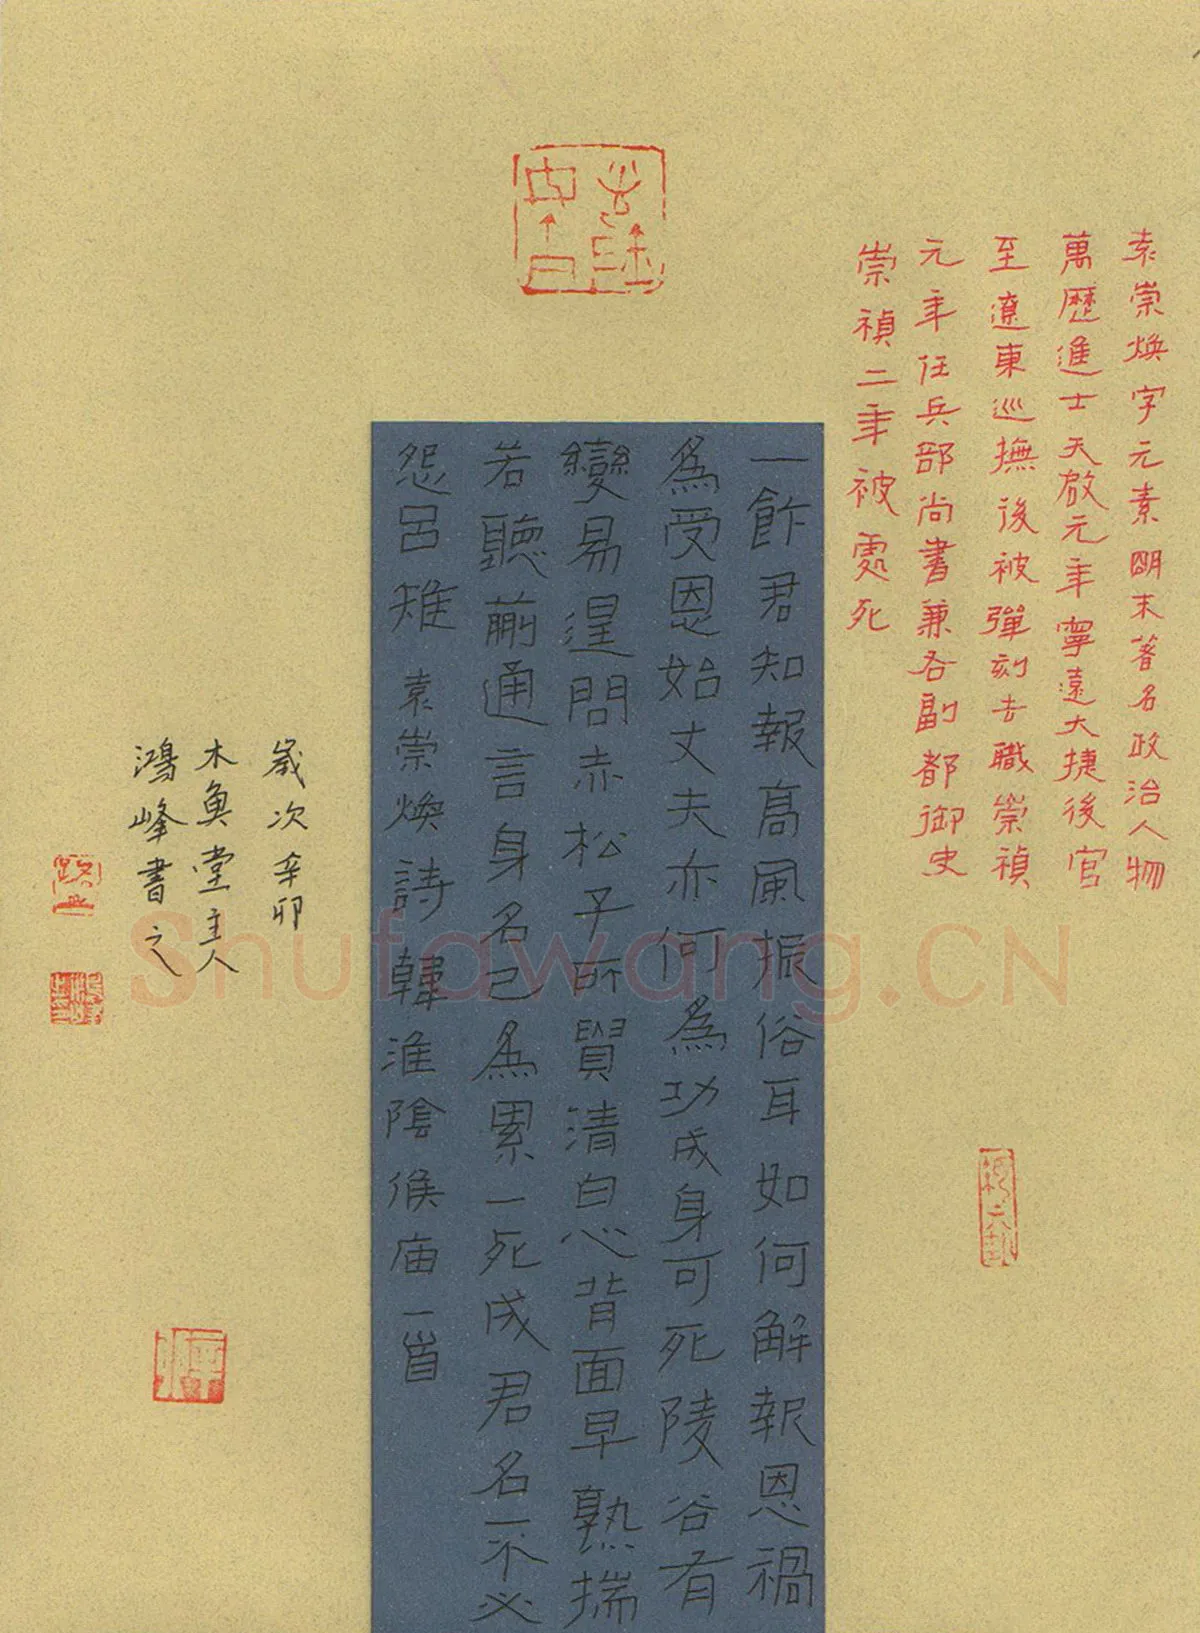 袁崇煥字元素明末著名政治人物
萬歷進士天啟元年寧遠大捷後官
至遼東巡撫後被彈刻去職崇禎
元年任兵部尚書兼各副都御史
崇禎二年被處死
一飵君知報高風振俗耳如何解報恩禍
為受恩始丈夫亦何為功成身可死陵谷有
變易遑問赤松子所貿清白心背面早熟揣
若聽蒯通言身名已為累一死成君名不必
怨呂雉 袁崇煥詩韓淮陰侯庙一首
歲次辛卯
木魚堂主人
鴻峰書之
Shufawang.CN